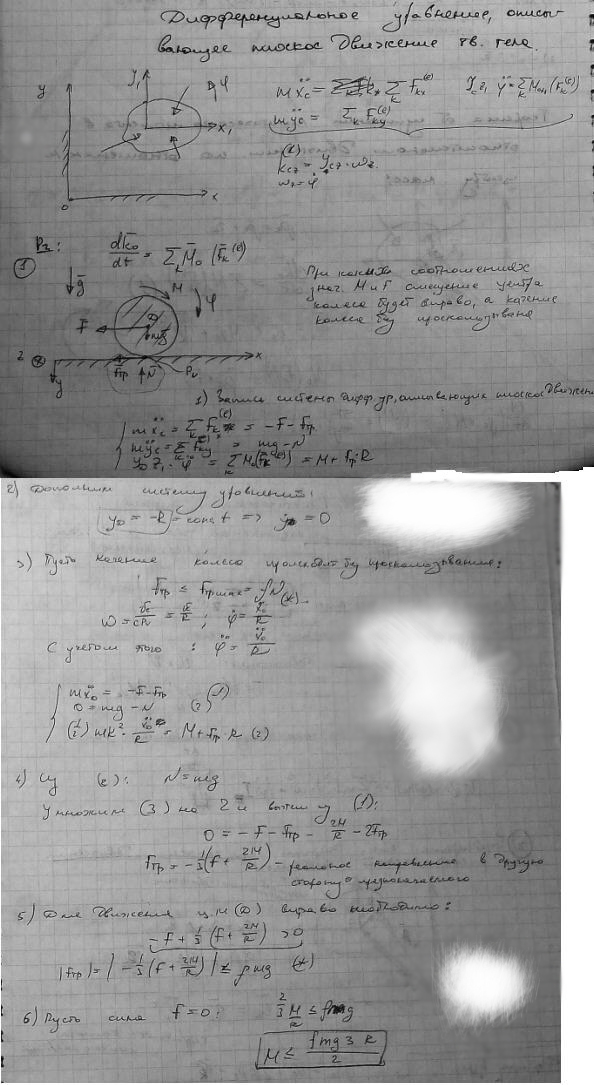 Дифференциальное уравнение, описы-
вающее плоское движение тв. тела.
y y₁ φ x₁ x 0
mẍc = Σ Fkx^(e) Jcz₁ φ̈ = Σ Mcz₁(F̄k^(e))
mÿc = Σ Fky^(e)
Kcz = Jcz · ωz
ωz = φ̇
Рз:
dK̄o/dt = Σ M̄o (F̄k^(e))
①
ḡ M φ F̄ mḡ D
z x y Fтр N̄ Pv
При каких соотношениях
знач. M и F смещение центра
колеса будет вправо, а качение
колеса без проскальзывания
1) Запись системы дифф. ур, описывающих плоское движение
mẍc = Σ Fkx^(e) = -F - Fтр
mÿc = Σ Fky^(e) = mg - N
JDz₁ · φ̈ = Σ MD(F̄k^(e)) = M + Fтр · R
2) Дополним систему уравнений:
yD = -R = const => ÿD = 0
3) Пусть качение колеса происходит без проскальзывания:
Fтр ≤ Fтр max = fN (*)
ω = Vc/CPv = Vc/R ; φ̇ = ẋD/R
С учетом этого : φ̈ = ẍD/R
mẍD = -F - Fтр (1)
0 = mg - N (2)
(1/2) mR² · ẍD/R = M + Fтр · R (2)
4) Из (2): N = mg
Умножим (3) на 2 и вычтем из (1):
0 = -F - Fтр - 2M/R - 2Fтр
Fтр = -1/3 (F + 2M/R) - реальное направление в другую
сторону предполагаемого
5) Для движения ц.м (D) вправо необходимо:
-F + 1/3 (F + 2M/R) > 0
|Fтр| = | -1/3 (F + 2M/R) | ≤ fmg (*)
6) Пусть сила F = 0: 2/3 M/R ≤ fmg
M ≤ fmg 3 R / 2